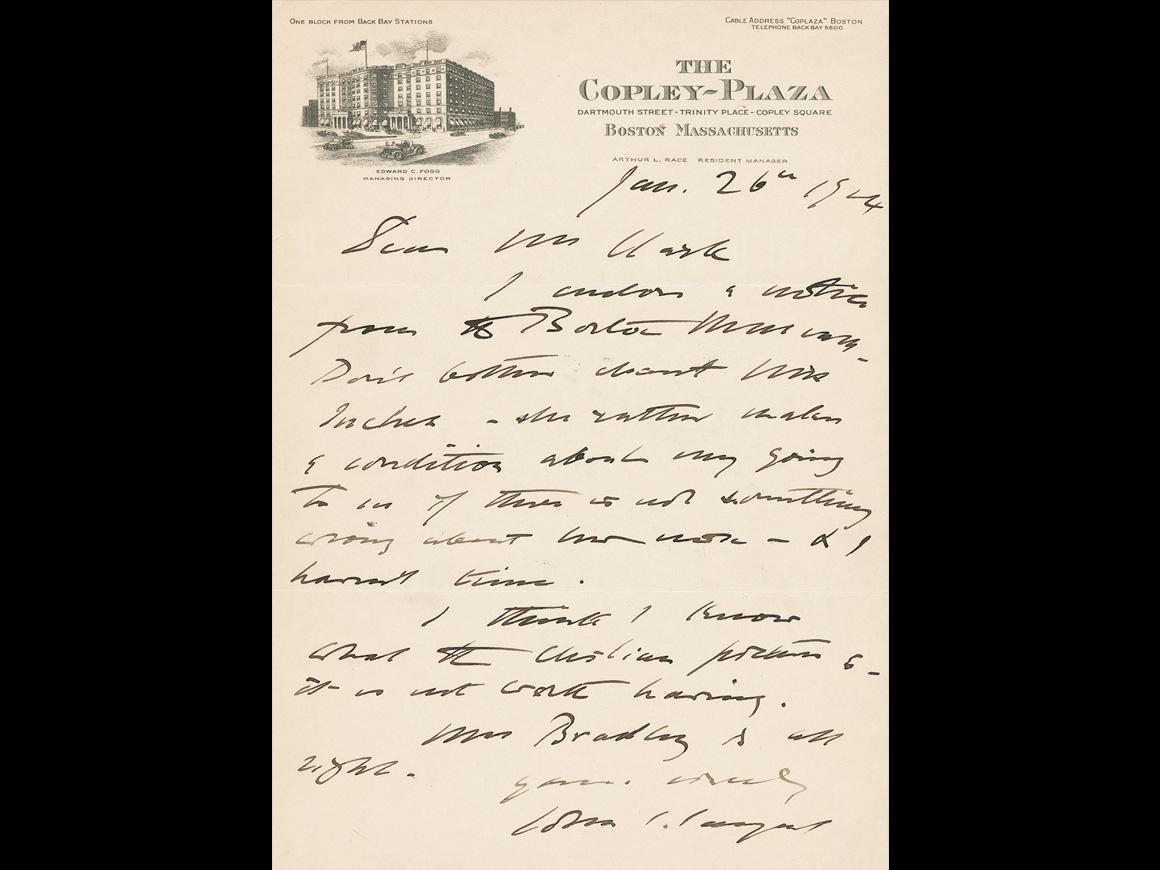 ONE BLOCK FROM BACK BAY STATIONS
CABLE ADDRESS "COPLAZA" BOSTON
TELEPHONE BACK BAY 5600
THE
COPLEY-PLAZA
DARTMOUTH STREET - TRINITY PLACE - COPLEY SQUARE
BOSTON MASSACHUSETTS
ARTHUR L. RACE RESIDENT MANAGER
EDWARD C. FOGG
MANAGING DIRECTOR
Jan. 26th 1924
Dear Mr Clark
I enclose a notice
from the Boston Museum -
Don't bother about Miss
Inches - she rather makes
a condition about my going
to see if there is not something
wrong about her nose - & I
haven't time.
I think I know
what the picture is -
it is not worth having.
Mrs Bradley is all
right.
yours sincerely
John S. Sargent